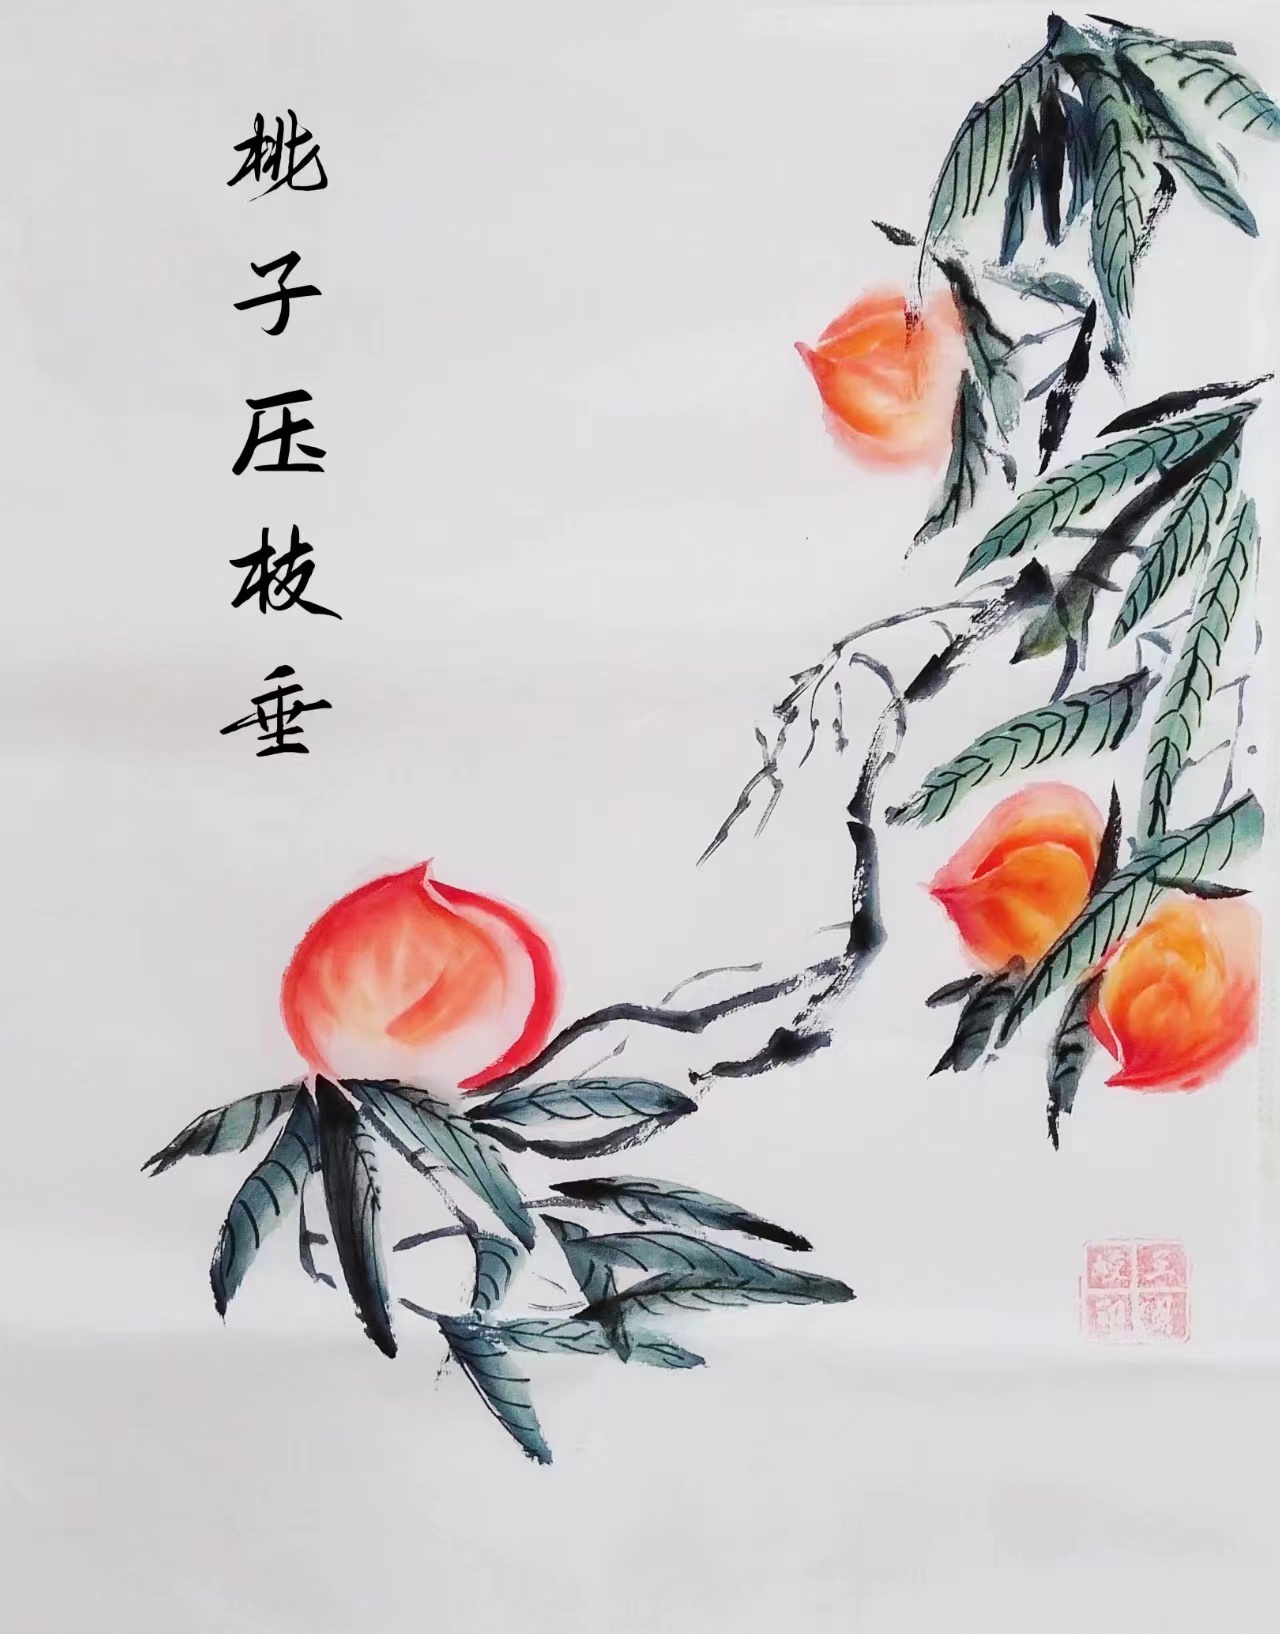 桃子压枝垂